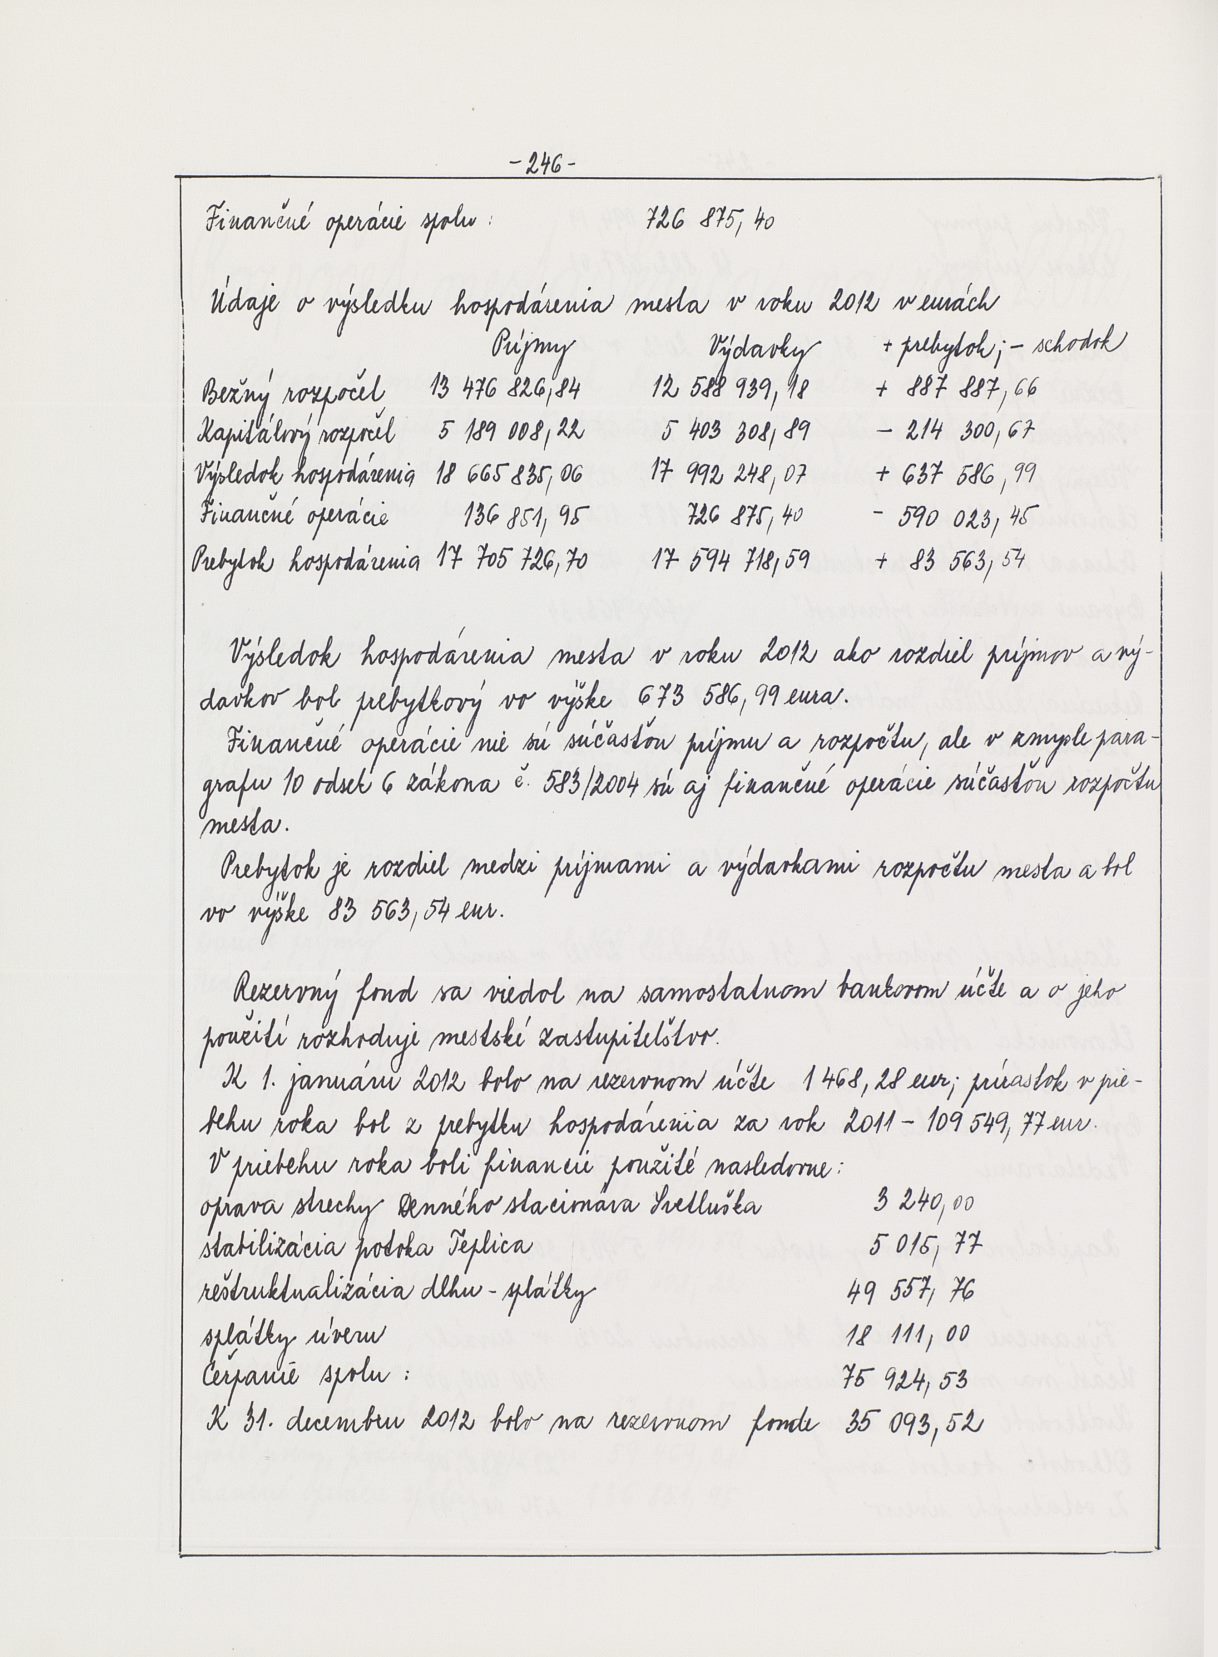 - 246 -
Finančné operácie spolu : 726 875, 40
Údaje o výsledku hospodárenia mesta v roku 2012 v eurách
Príjmy Výdavky + prebytok; - schodok
Bežný rozpočet 13 476 826,84 12 588 939, 18 + 887 887,66
Kapitálový rozpočet 5 189 008, 22 5 403 308, 89 - 214 300, 67
Výsledok hospodárenia 18 665 835, 06 17 992 248, 07 + 637 586, 99
Finančné operácie 136 851, 95 726 875, 40 - 590 023, 45
Prebytok hospodárenia 17 705 726, 70 17 594 718, 59 + 83 563, 54
Výsledok hospodárenia mesta v roku 2012 ako rozdiel príjmov a vý-
davkov bol prebytkový vo výške 673 586, 99 eura.
Finančné operácie nie sú súčasťou príjmu a rozpočtu, ale v zmysle para-
grafu 10 odsek 6 zákona č. 583/2004 sú aj finančné operácie súčasťou rozpočtu
mesta.
Prebytok je rozdiel medzi príjmami a výdavkami rozpočtu mesta a bol
vo výške 83 563, 54 eur.
Rezervný fond sa viedol na samostatnom bankovom účte a o jeho
použití rozhoduje mestské zastupiteľstvo.
K 1. januáru 2012 bolo na rezervnom účte 1 468, 28 eur; prírastok v prie-
behu roka bol z prebytku hospodárenia za rok 2011 - 109 549, 77 eur.
V priebehu roka boli financie použité nasledovne :
oprava strechy Denného stacionára Svetluška 3 240,00
stabilizácia potoka Teplica 5 015, 77
reštruktualizácia dlhu - splátky 49 557, 76
splátky úveru 18 111, 00
Čerpanie spolu : 75 924, 53
K 31. decembru 2012 bolo na rezervnom fonde 35 093, 52